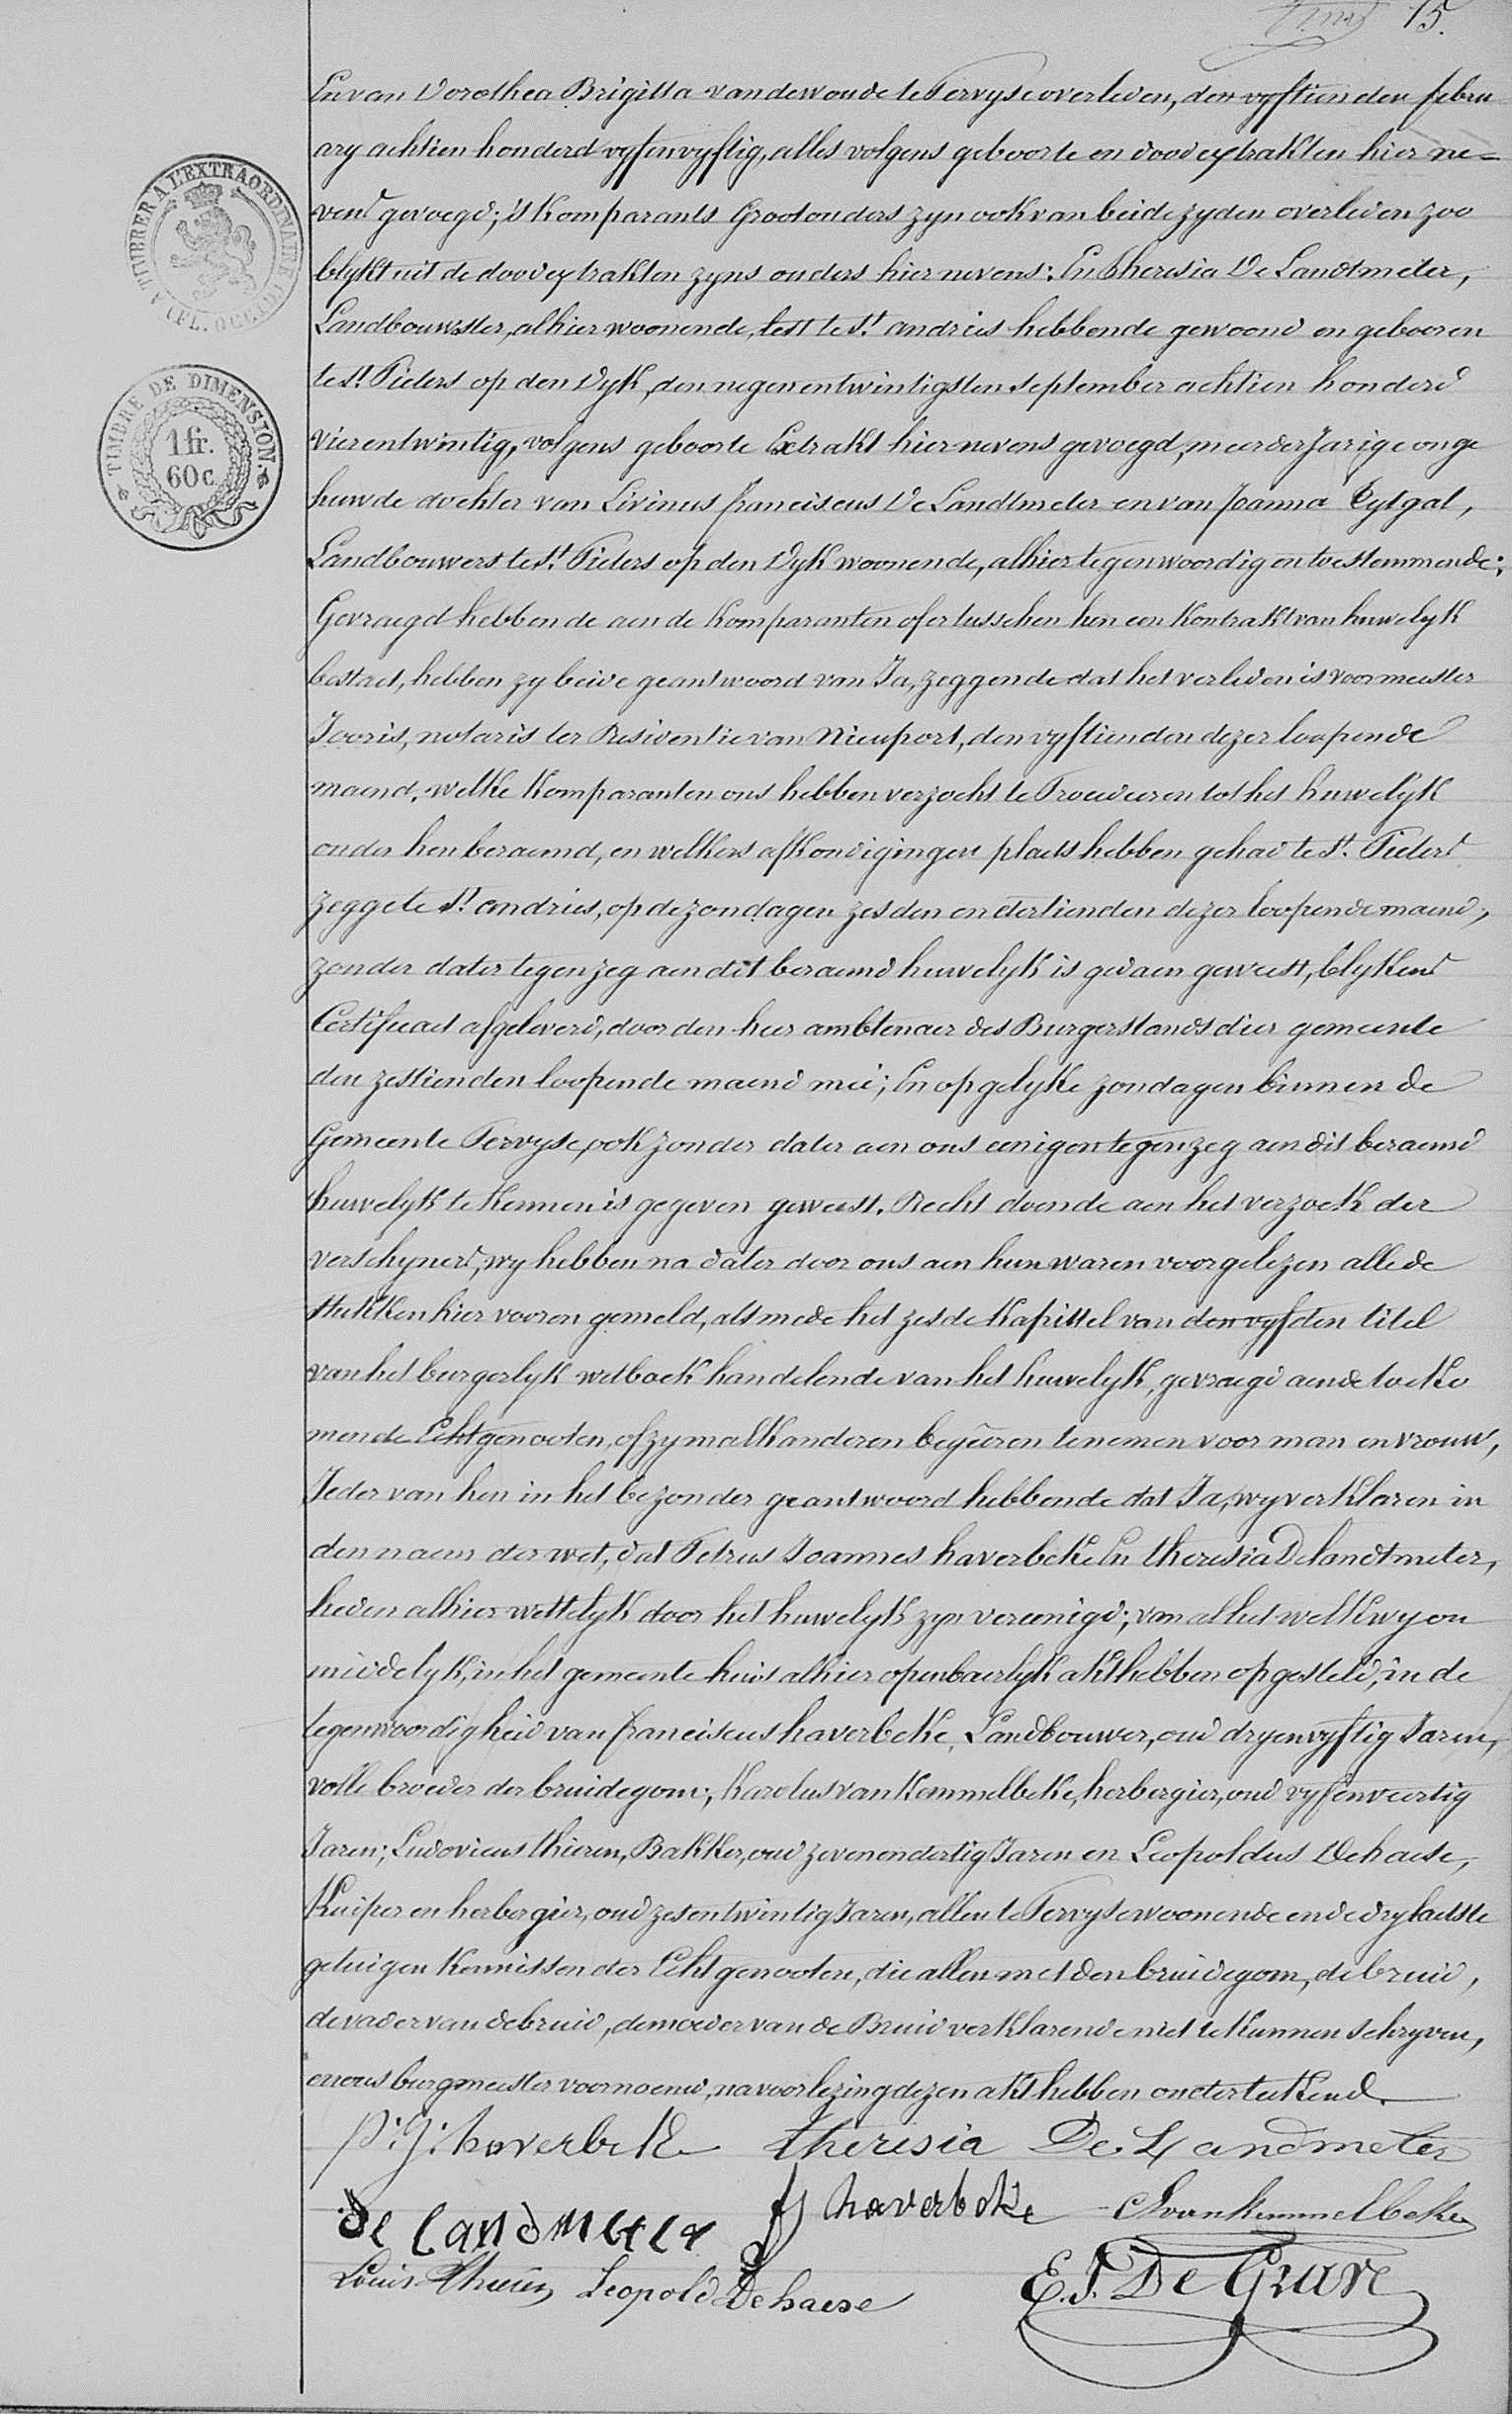 15.
En van Dorothea Brigitta vandewoude te Pervyse overleden, den vyftienden febru
ary achtien honderd vyfenvyftig, alles volgens geboorte en doodextrakten hier ne=
vens gevoegd; 's Komparants Grootouders zyn ook van beide zyden overleden zoo
blykt uit de doodextrakten zyns ouders hier nevens: En Theresia De Landtmeter,
Landbouwster, alhier woonende, lest te St. andries hebbende gewoond en gebooren
te St. Pieters op den Dyk, den negenentwintigsten september achtien honderd
vierentwintig, volgens geboorte Extrakt hier nevens gevoegd, meerderJarige onge
huwde dochter van Livinus franciscus De Landtmeter en van Joanna Eytgat,
Landbouwers te St. Pieters op den Dyk woonende, alhier tegenwoordig en toestemmende:,
Gevraegd hebbende aen de Komparanten of er tusschen hen een Kontrakt van huwelyk
bestaet, hebben zy beide geantwoord van Ja, zeggende dat het verleden is voor meester
Jooris, notaris ter Residentie van Nieuport, den vyftienden dezer loopende
maend. welke Komparanten ons hebben verzocht te Procedeeren tot het huwelyk
onder hen beraemd, en welkers afkondigingen plaets hebben gehad te St. Pieters
zegge te St. andries, op de zondagen zesden en dertienden dezer loopende maend,
zonder dat er tegenzeg aen dit beraemd huwelyk is gedaen geweest, blykens
Certificaet afgeleverd, door den heer ambtenaer des Burgerstands dier gemeente
den zestienden loopende maend mei; En op gelyke zondagen binnen de
Gemeente Pervyse, ook zonder dat er aen ons eenigen tegenzeg aen dit beraemd
huwelyk te Kennen is gegeven geweest. Recht doende aen het verzoek der
verschyners, wy hebben na dat er door ons aen hun waren voorgelezen alle de
stukken hier vooren gemeld, alsmede het zesde Kapittel van den vyfden titel
van het burgerlyk wetboek handelende van het huwelyk, gevraegd aen de toeko
mende Echtgenooten, of zy malkanderen begeeren te nemen voor man en vrouw,
Ieder van hen in het bezonder geantwoord hebbende dat Ja, wy verklaren in
den naem der wet, dat Petrus Joannes haverbeke En theresia Delandtmeter,
heden alhier wettelyk door het huwelyk zyn vereenigd; van al het welk wy on
middelyk, in het gemeente huis alhier openbaerlyk akt hebben opgesteld, in de
tegenwoordigheid van franciscus haverbeke, Landbouwer, oud dryenvyftig Jaren,
volle broeder der bruidegom; Karolus van Kemmelbeke, herbergier, oud vyfenveertig
Jaren; Ludovicus thieren, Bakker, oud zevenendertig Jaren en Leopoldus Dehaese,
Kuiper en herbergier, oud zesentwintig Jaren, allen te Pervyse woonende en de dry laetste
getuigen Kennissen der Echtgenooten, die allen met den bruidegom, de bruid,
de vader van de bruid, de moeder van de Bruid verklarende niet te kunnen schryven,
en ons burgmeester voornoemd, na voorlezing dezen akt hebben onderteekend.
P: J: haverbeke theresia De Landmeter
de Landmeter fs haverbeke C vankemmelbeke
Louis Thieren Leopold Dehaese E. P. De Grave
A TIMBRER A L'EXTRAORDINAIRE
(FL. OCC.)
TIMBRE DE DIMENSION.
1 fr.
60 c.